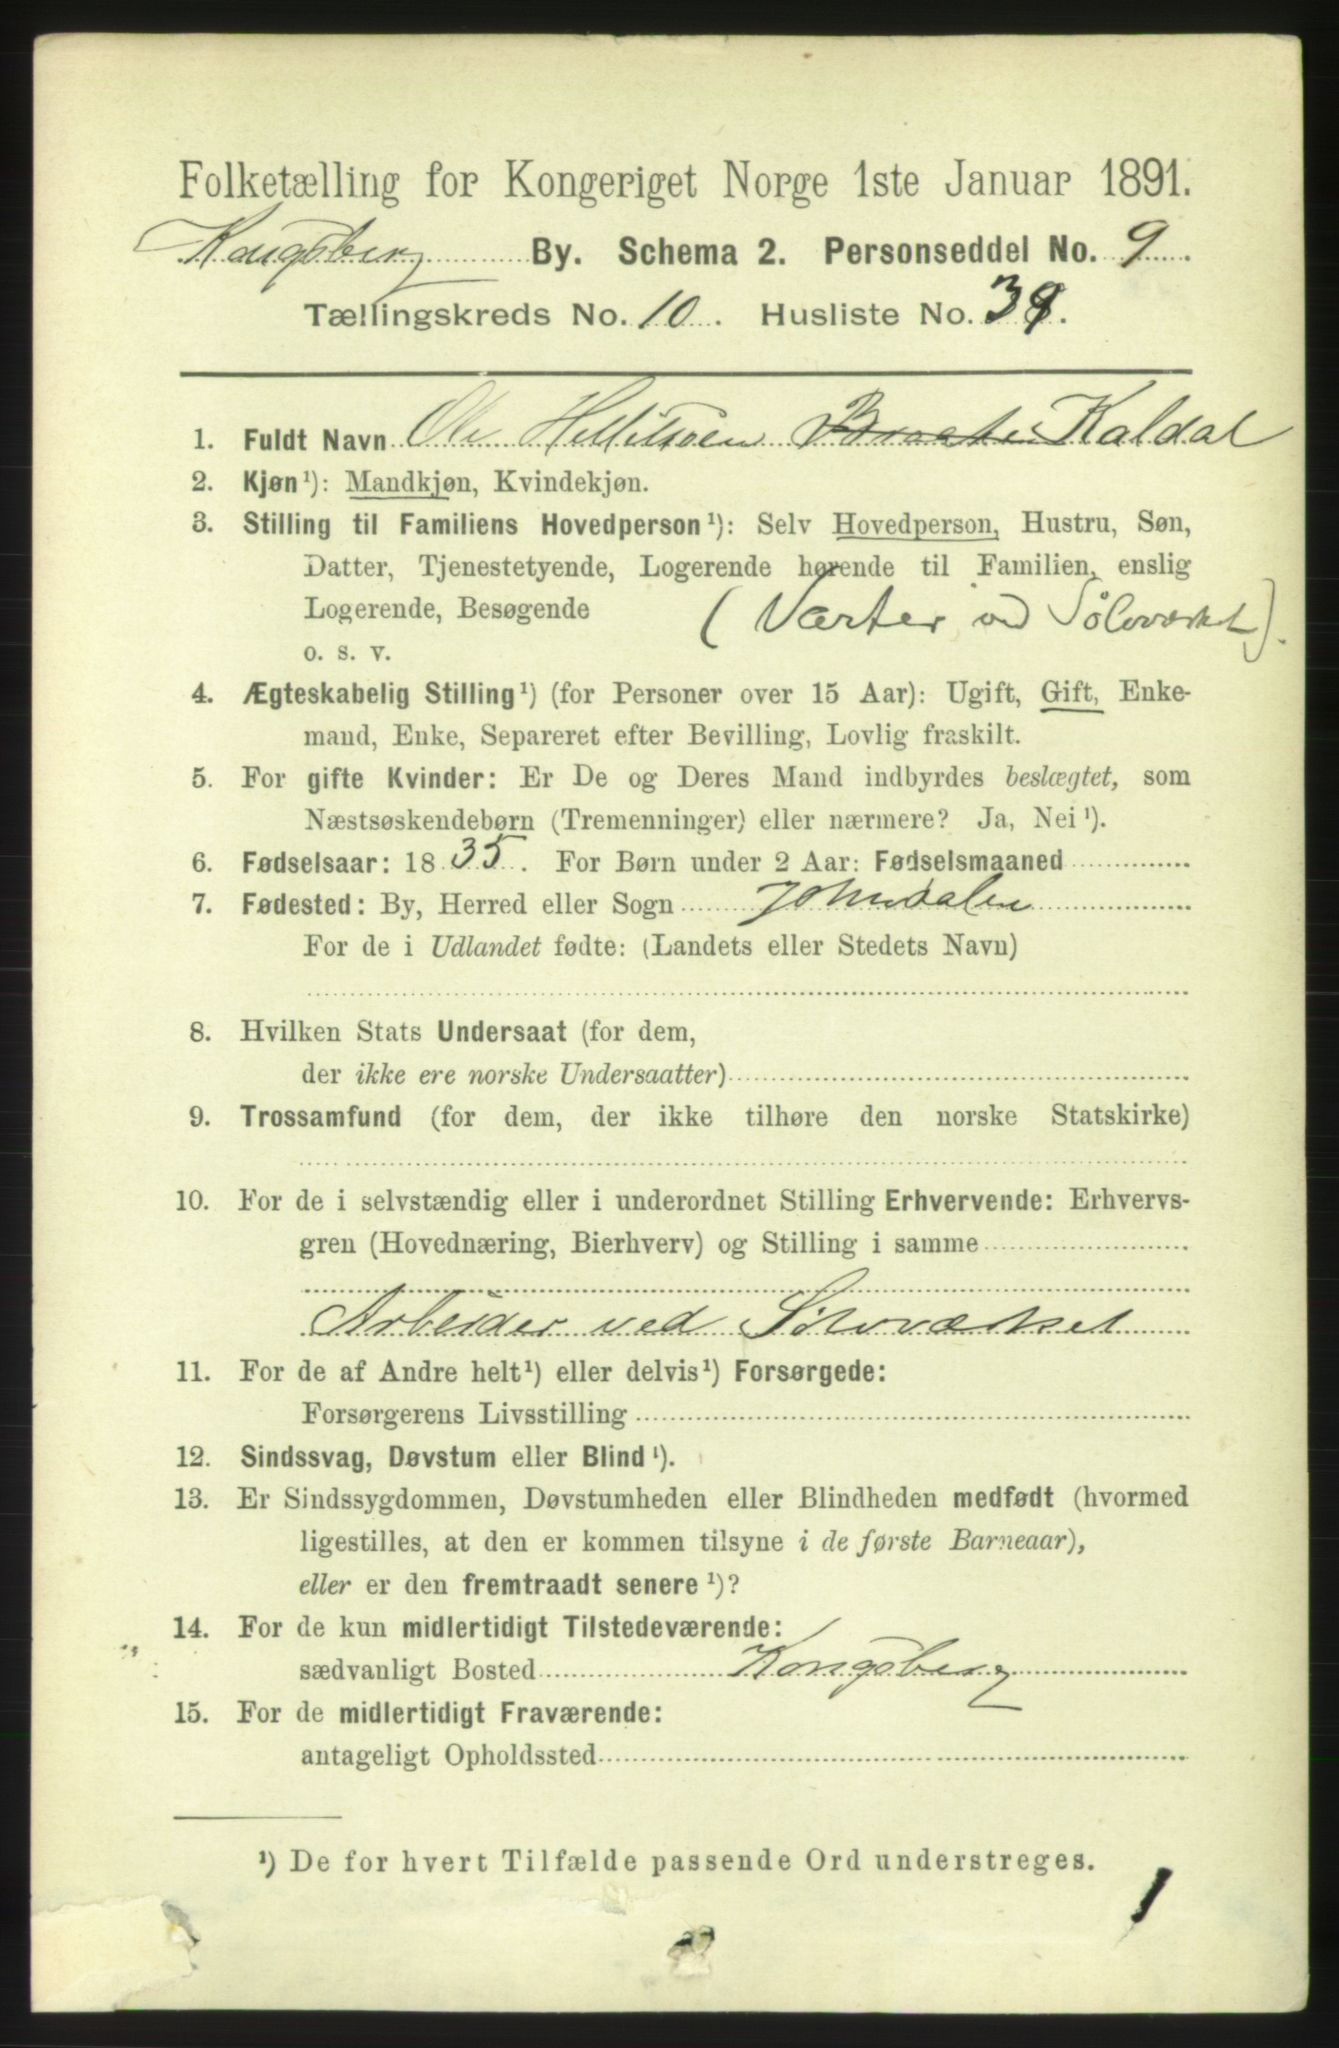 Folketælling for Kongeriget Norge 1ste Januar 1891.
Kongsberg By. Schema 2. Personseddel No. 9.
Tællingskreds No. 10. Husliste No. 39.
1. Fuldt Navn Ole Helliksen Braate Kaldal
2. Kjøn¹): Mandkjøn, Kvindekjøn.
3. Stilling til Familiens Hovedperson¹): Selv Hovedperson, Hustru, Søn,
Datter, Tjenestetyende, Logerende hørende til Familien, enslig
Logerende, Besøgende (Værter ved Sølvværket).
o. s. v.
4. Ægteskabelig Stilling¹) (for Personer over 15 Aar): Ugift, Gift, Enke-
mand, Enke, Separeret efter Bevilling, Lovlig fraskilt.
5. For gifte Kvinder: Er De og Deres Mand indbyrdes beslægtet, som
Næstsøskendebørn (Tremenninger) eller nærmere? Ja, Nei¹).
6. Fødselsaar: 1835. For Børn under 2 Aar: Fødselsmaaned
7. Fødested: By, Herred eller Sogn Johnsdalen
For de i Udlandet fødte: (Landets eller Stedets Navn)
8. Hvilken Stats Undersaat (for dem,
der ikke ere norske Undersaatter)
9. Trossamfund (for dem, der ikke tilhøre den norske Statskirke)
10. For de i selvstændig eller i underordnet Stilling Erhvervende: Erhvervs-
gren (Hovednæring, Bierhverv) og Stilling i samme
Arbeider ved Sølvværket
11. For de af Andre helt¹) eller delvis¹) Forsørgede:
Forsørgerens Livsstilling
12. Sindssvag, Døvstum eller Blind¹).
13. Er Sindssygdommen, Døvstumheden eller Blindheden medfødt (hvormed
ligestilles, at den er kommen tilsyne i de første Barneaar),
eller er den fremtraadt senere¹)?
14. For de kun midlertidigt Tilstedeværende:
sædvanligt Bosted Kongsberg
15. For de midlertidigt Fraværende:
antageligt Opholdssted
¹) De for hvert Tilfælde passende Ord understreges.
1